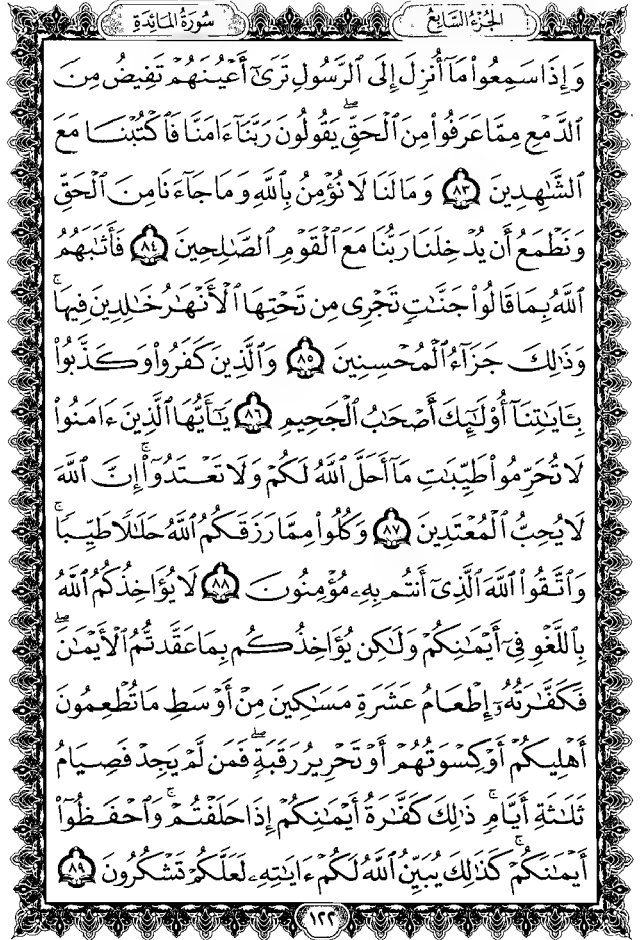 الجُزْءُ السَّابِعُ
سُورَةُ المَائِدَةِ
وَإِذَا سَمِعُوا۟ مَآ أُنزِلَ إِلَى ٱلرَّسُولِ تَرَىٰٓ أَعْيُنَهُمْ تَفِيضُ مِنَ
ٱلدَّمْعِ مِمَّا عَرَفُوا۟ مِنَ ٱلْحَقِّ ۖ يَقُولُونَ رَبَّنَآ ءَامَنَّا فَٱكْتُبْنَا مَعَ
ٱلشَّـٰهِدِينَ ٨٣ وَمَا لَنَا لَا نُؤْمِنُ بِٱللَّهِ وَمَا جَآءَنَا مِنَ ٱلْحَقِّ
وَنَطْمَعُ أَن يُدْخِلَنَا رَبُّنَا مَعَ ٱلْقَوْمِ ٱلصَّـٰلِحِينَ ٨٤ فَأَثَـٰبَهُمُ
ٱللَّهُ بِمَا قَالُوا۟ جَنَّـٰتٍ تَجْرِى مِن تَحْتِهَا ٱلْأَنْهَـٰرُ خَـٰلِدِينَ فِيهَا ۚ
وَذَٰلِكَ جَزَآءُ ٱلْمُحْسِنِينَ ٨٥ وَٱلَّذِينَ كَفَرُوا۟ وَكَذَّبُوا۟
بِـَٔايَـٰتِنَآ أُو۟لَـٰٓئِكَ أَصْحَـٰبُ ٱلْجَحِيمِ ٨٦ يَـٰٓأَيُّهَا ٱلَّذِينَ ءَامَنُوا۟
لَا تُحَرِّمُوا۟ طَيِّبَـٰتِ مَآ أَحَلَّ ٱللَّهُ لَكُمْ وَلَا تَعْتَدُوٓا۟ ۚ إِنَّ ٱللَّهَ
لَا يُحِبُّ ٱلْمُعْتَدِينَ ٨٧ وَكُلُوا۟ مِمَّا رَزَقَكُمُ ٱللَّهُ حَلَـٰلًا طَيِّبًا ۚ
وَٱتَّقُوا۟ ٱللَّهَ ٱلَّذِىٓ أَنتُم بِهِۦ مُؤْمِنُونَ ٨٨ لَا يُؤَاخِذُكُمُ ٱللَّهُ
بِٱللَّغْوِ فِىٓ أَيْمَـٰنِكُمْ وَلَـٰكِن يُؤَاخِذُكُم بِمَا عَقَّدتُّمُ ٱلْأَيْمَـٰنَ ۖ
فَكَفَّـٰرَتُهُۥٓ إِطْعَامُ عَشَرَةِ مَسَـٰكِينَ مِنْ أَوْسَطِ مَا تُطْعِمُونَ
أَهْلِيكُمْ أَوْ كِسْوَتُهُمْ أَوْ تَحْرِيرُ رَقَبَةٍ ۖ فَمَن لَّمْ يَجِدْ فَصِيَامُ
ثَلَـٰثَةِ أَيَّامٍ ۚ ذَٰلِكَ كَفَّـٰرَةُ أَيْمَـٰنِكُمْ إِذَا حَلَفْتُمْ ۚ وَٱحْفَظُوٓا۟
أَيْمَـٰنَكُمْ ۚ كَذَٰلِكَ يُبَيِّنُ ٱللَّهُ لَكُمْ ءَايَـٰتِهِۦ لَعَلَّكُمْ تَشْكُرُونَ ٨٩
١٢٢